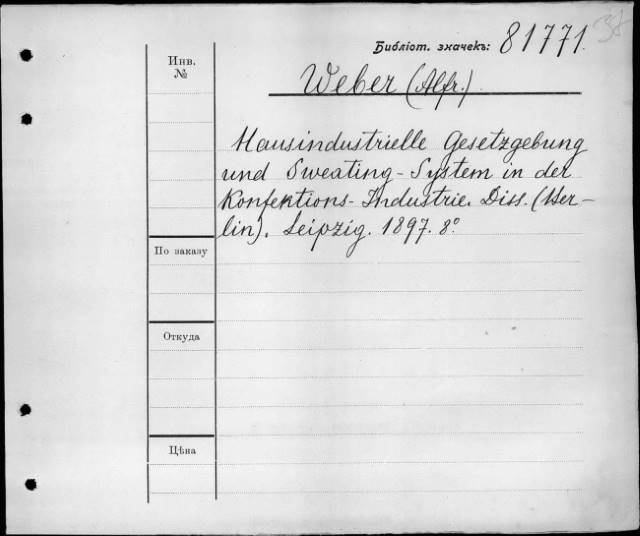 Библіот. значекъ: 81771.
Инв.
№
Weber (Alfr.)
Hausindustrielle Gesetzgebung
und Sweating-System in der
Konfektions-Industrie. Diss. (Ber-
lin). Leipzig. 1897. 8º
По заказу
Откуда
Цѣна